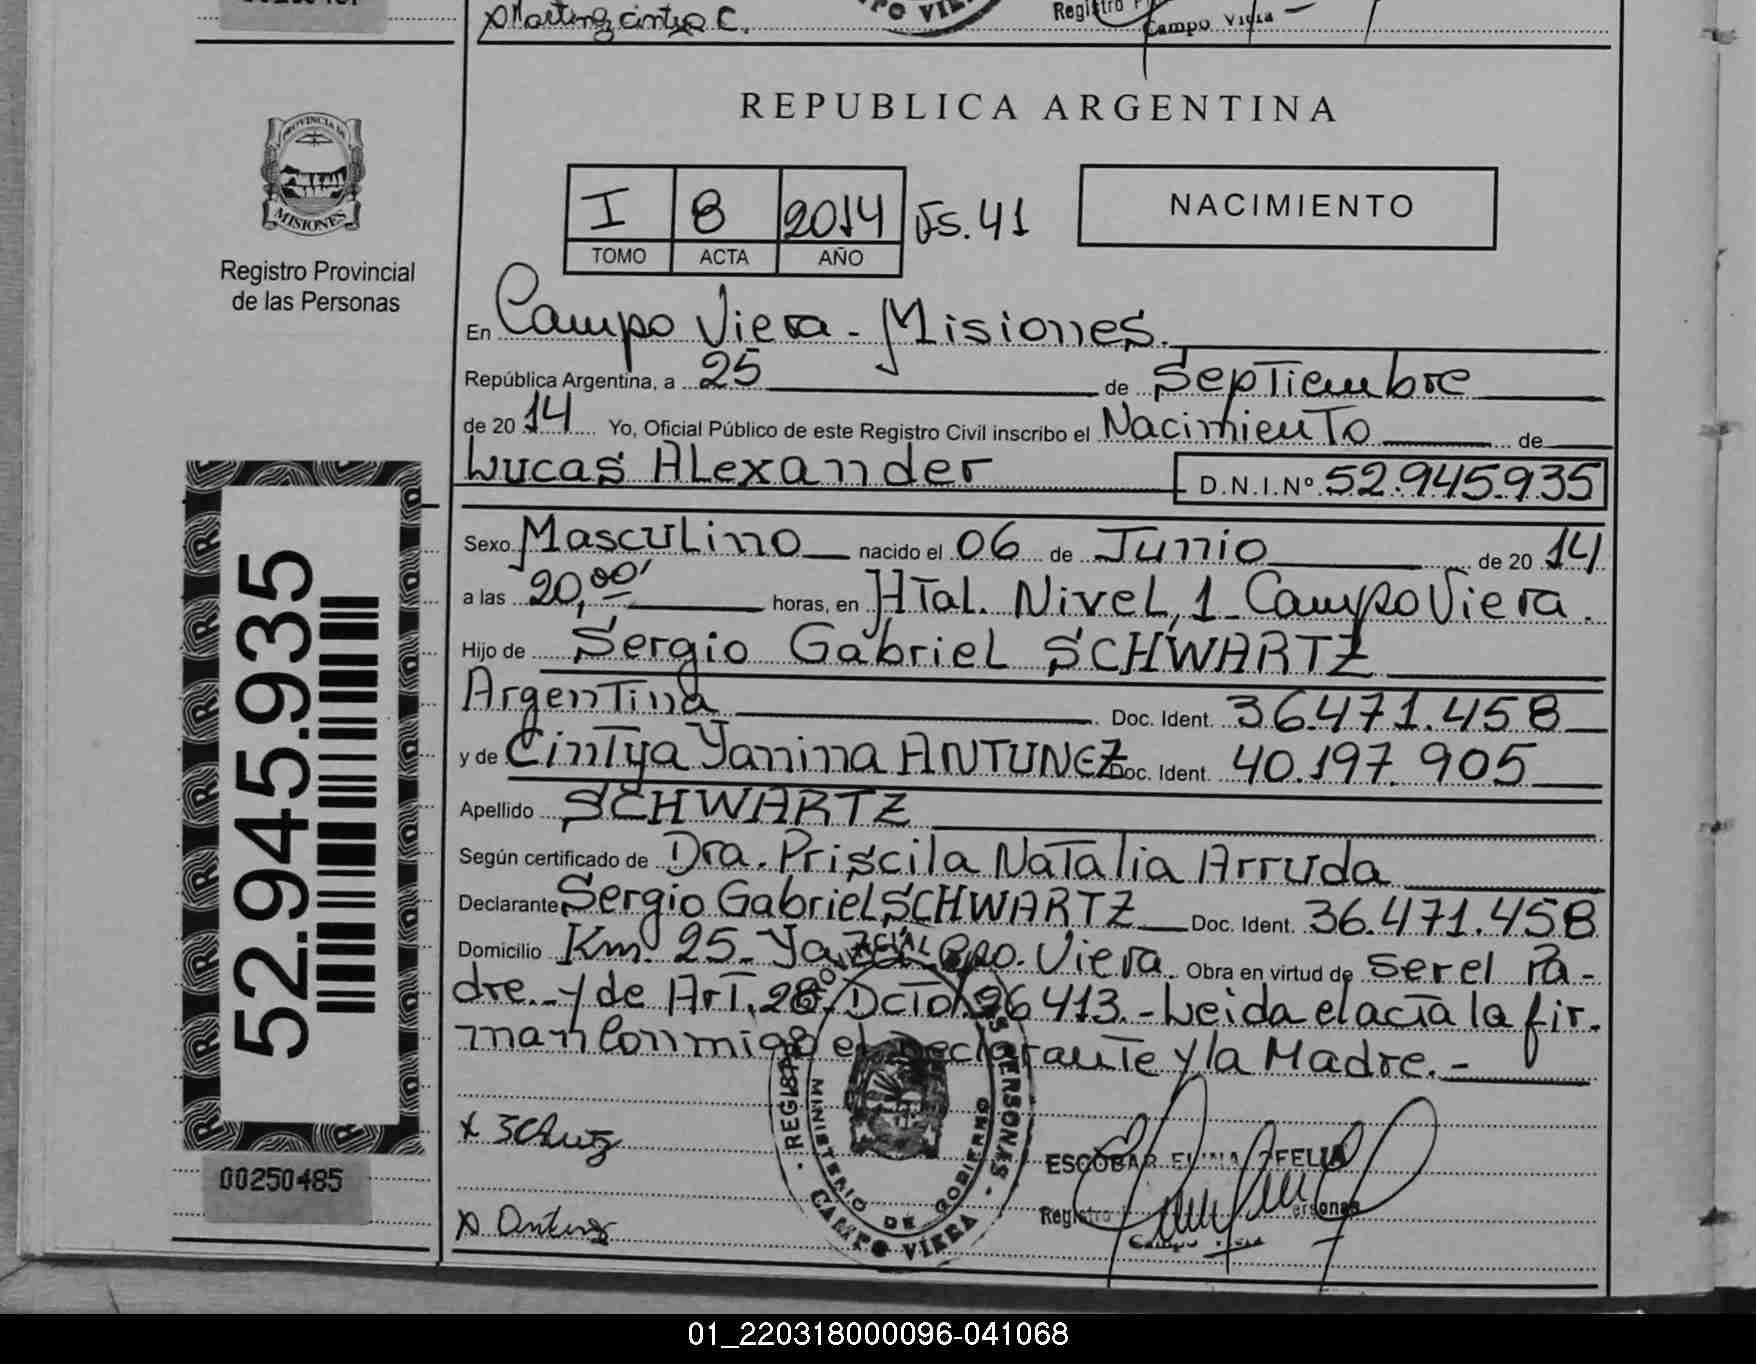 Registro
Campo Viera
REPUBLICA ARGENTINA
PROVINCIA DE
MISIONES
Registro Provincial
de las Personas
I 8 2014 Fs. 41
TOMO ACTA AÑO
NACIMIENTO
En Campo Viera - Misiones.
República Argentina, a 25 de Septiembre
de 2014 Yo, Oficial Público de este Registro Civil inscribo el Nacimiento de
Lucas Alexander D.N.I.Nº 52.945.935
Sexo Masculino nacido el 06 de Junio de 2014
a las 20,00' horas, en Htal. Nivel 1 - Campo Viera.
Hijo de Sergio Gabriel SCHWARTZ
Argentina Doc. Ident. 36.471.458
y de Cintya Yanina ANTUNEZ Doc. Ident. 40.197.905
Apellido SCHWARTZ
Según certificado de Dra. Priscila Natalia Arruda
Declarante Sergio Gabriel SCHWARTZ Doc. Ident. 36.471.458
Domicilio Km. 25 - Cpo. Viera. Obra en virtud de ser el Pa-
dre. - y de Art. 28. Dcto 26413. - Leida el acta la fir-
man conmigo el Declarante y la Madre. -
52.945.935
00250485
MINISTERIO DE GOBIERNO
CAMPO VIERA
ESCOBAR
Registro
01_220318000096-041068